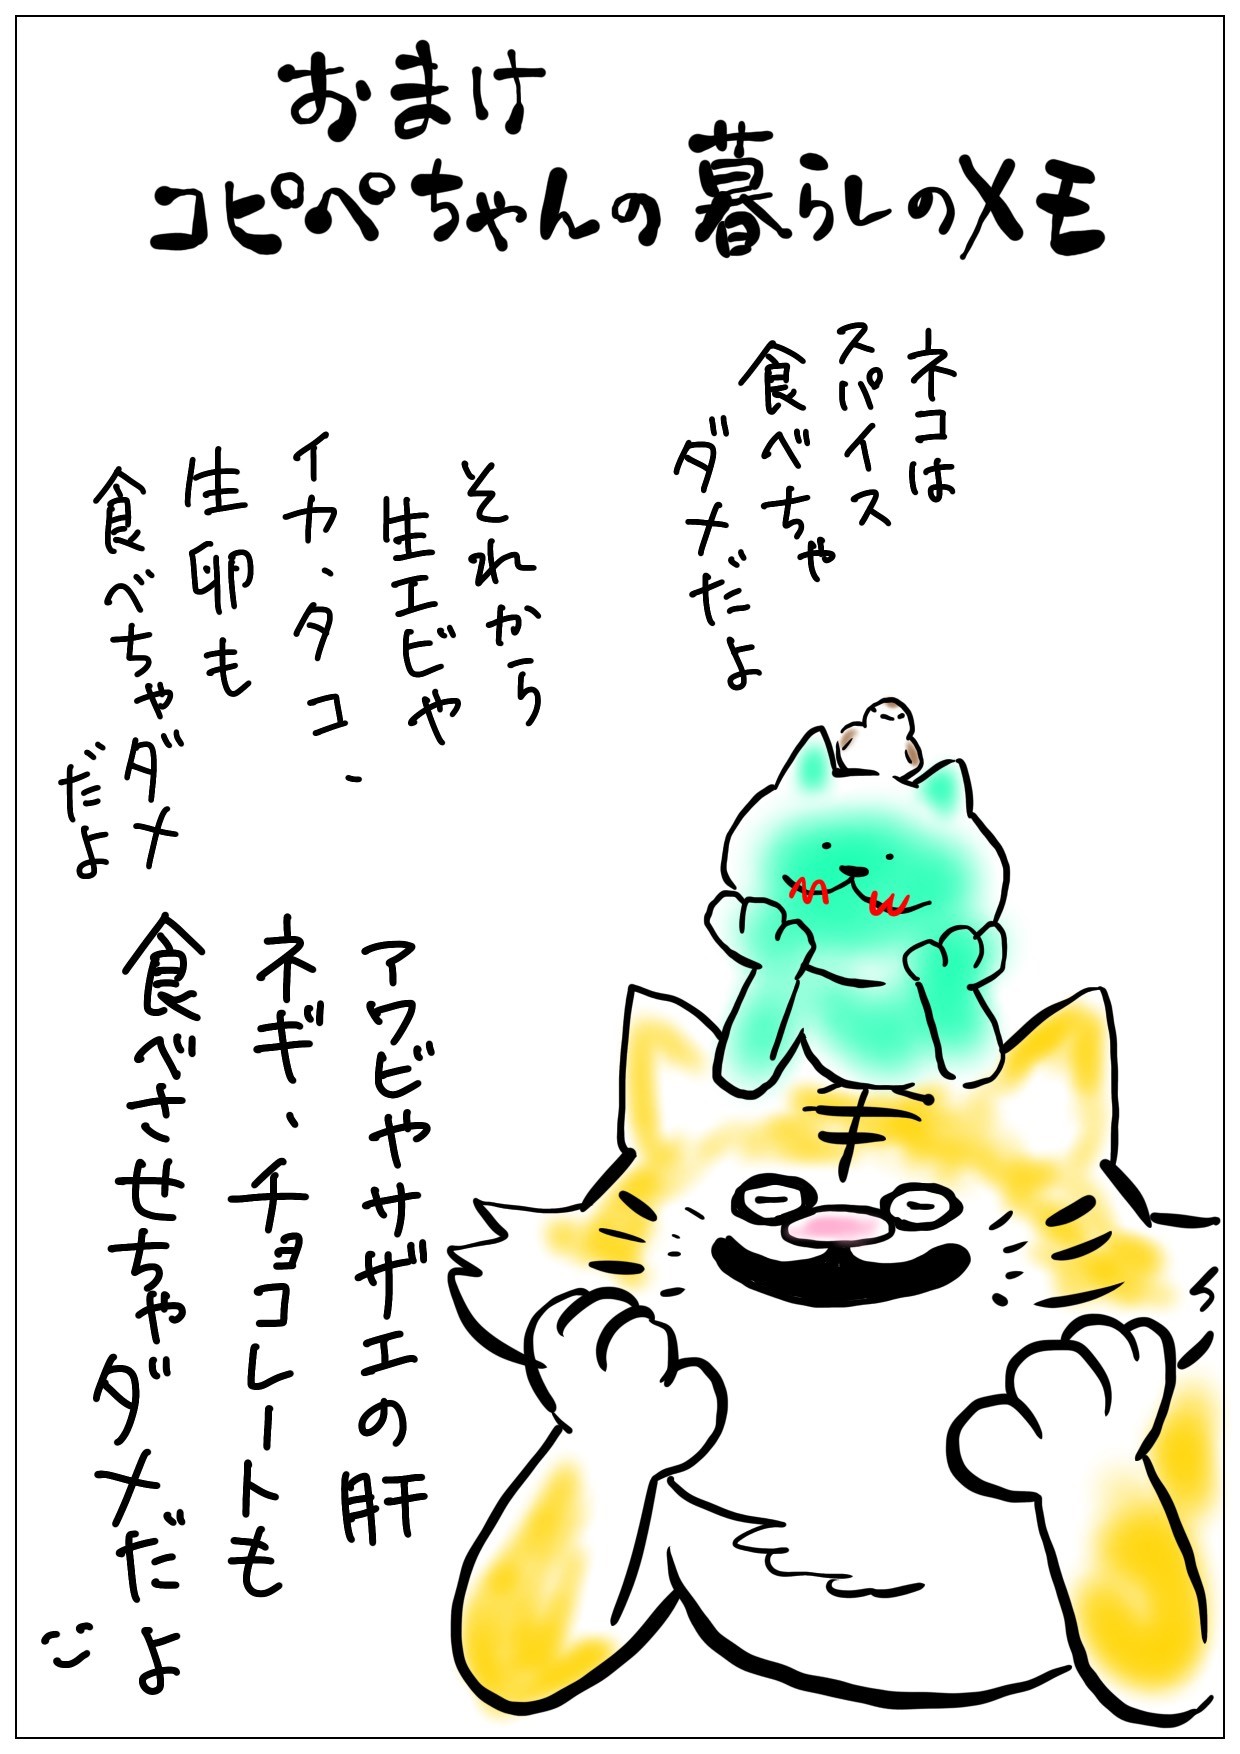 おまけ
コピペちゃんの暮らしのメモ
ネコは
スパイス
食べちゃ
ダメだよ
それから
生エビや
イカ、タコ、
生卵も
食べちゃダメ
だよ
アワビやサザエの肝
ネギ、チョコレートも
食べさせちゃダメだよ